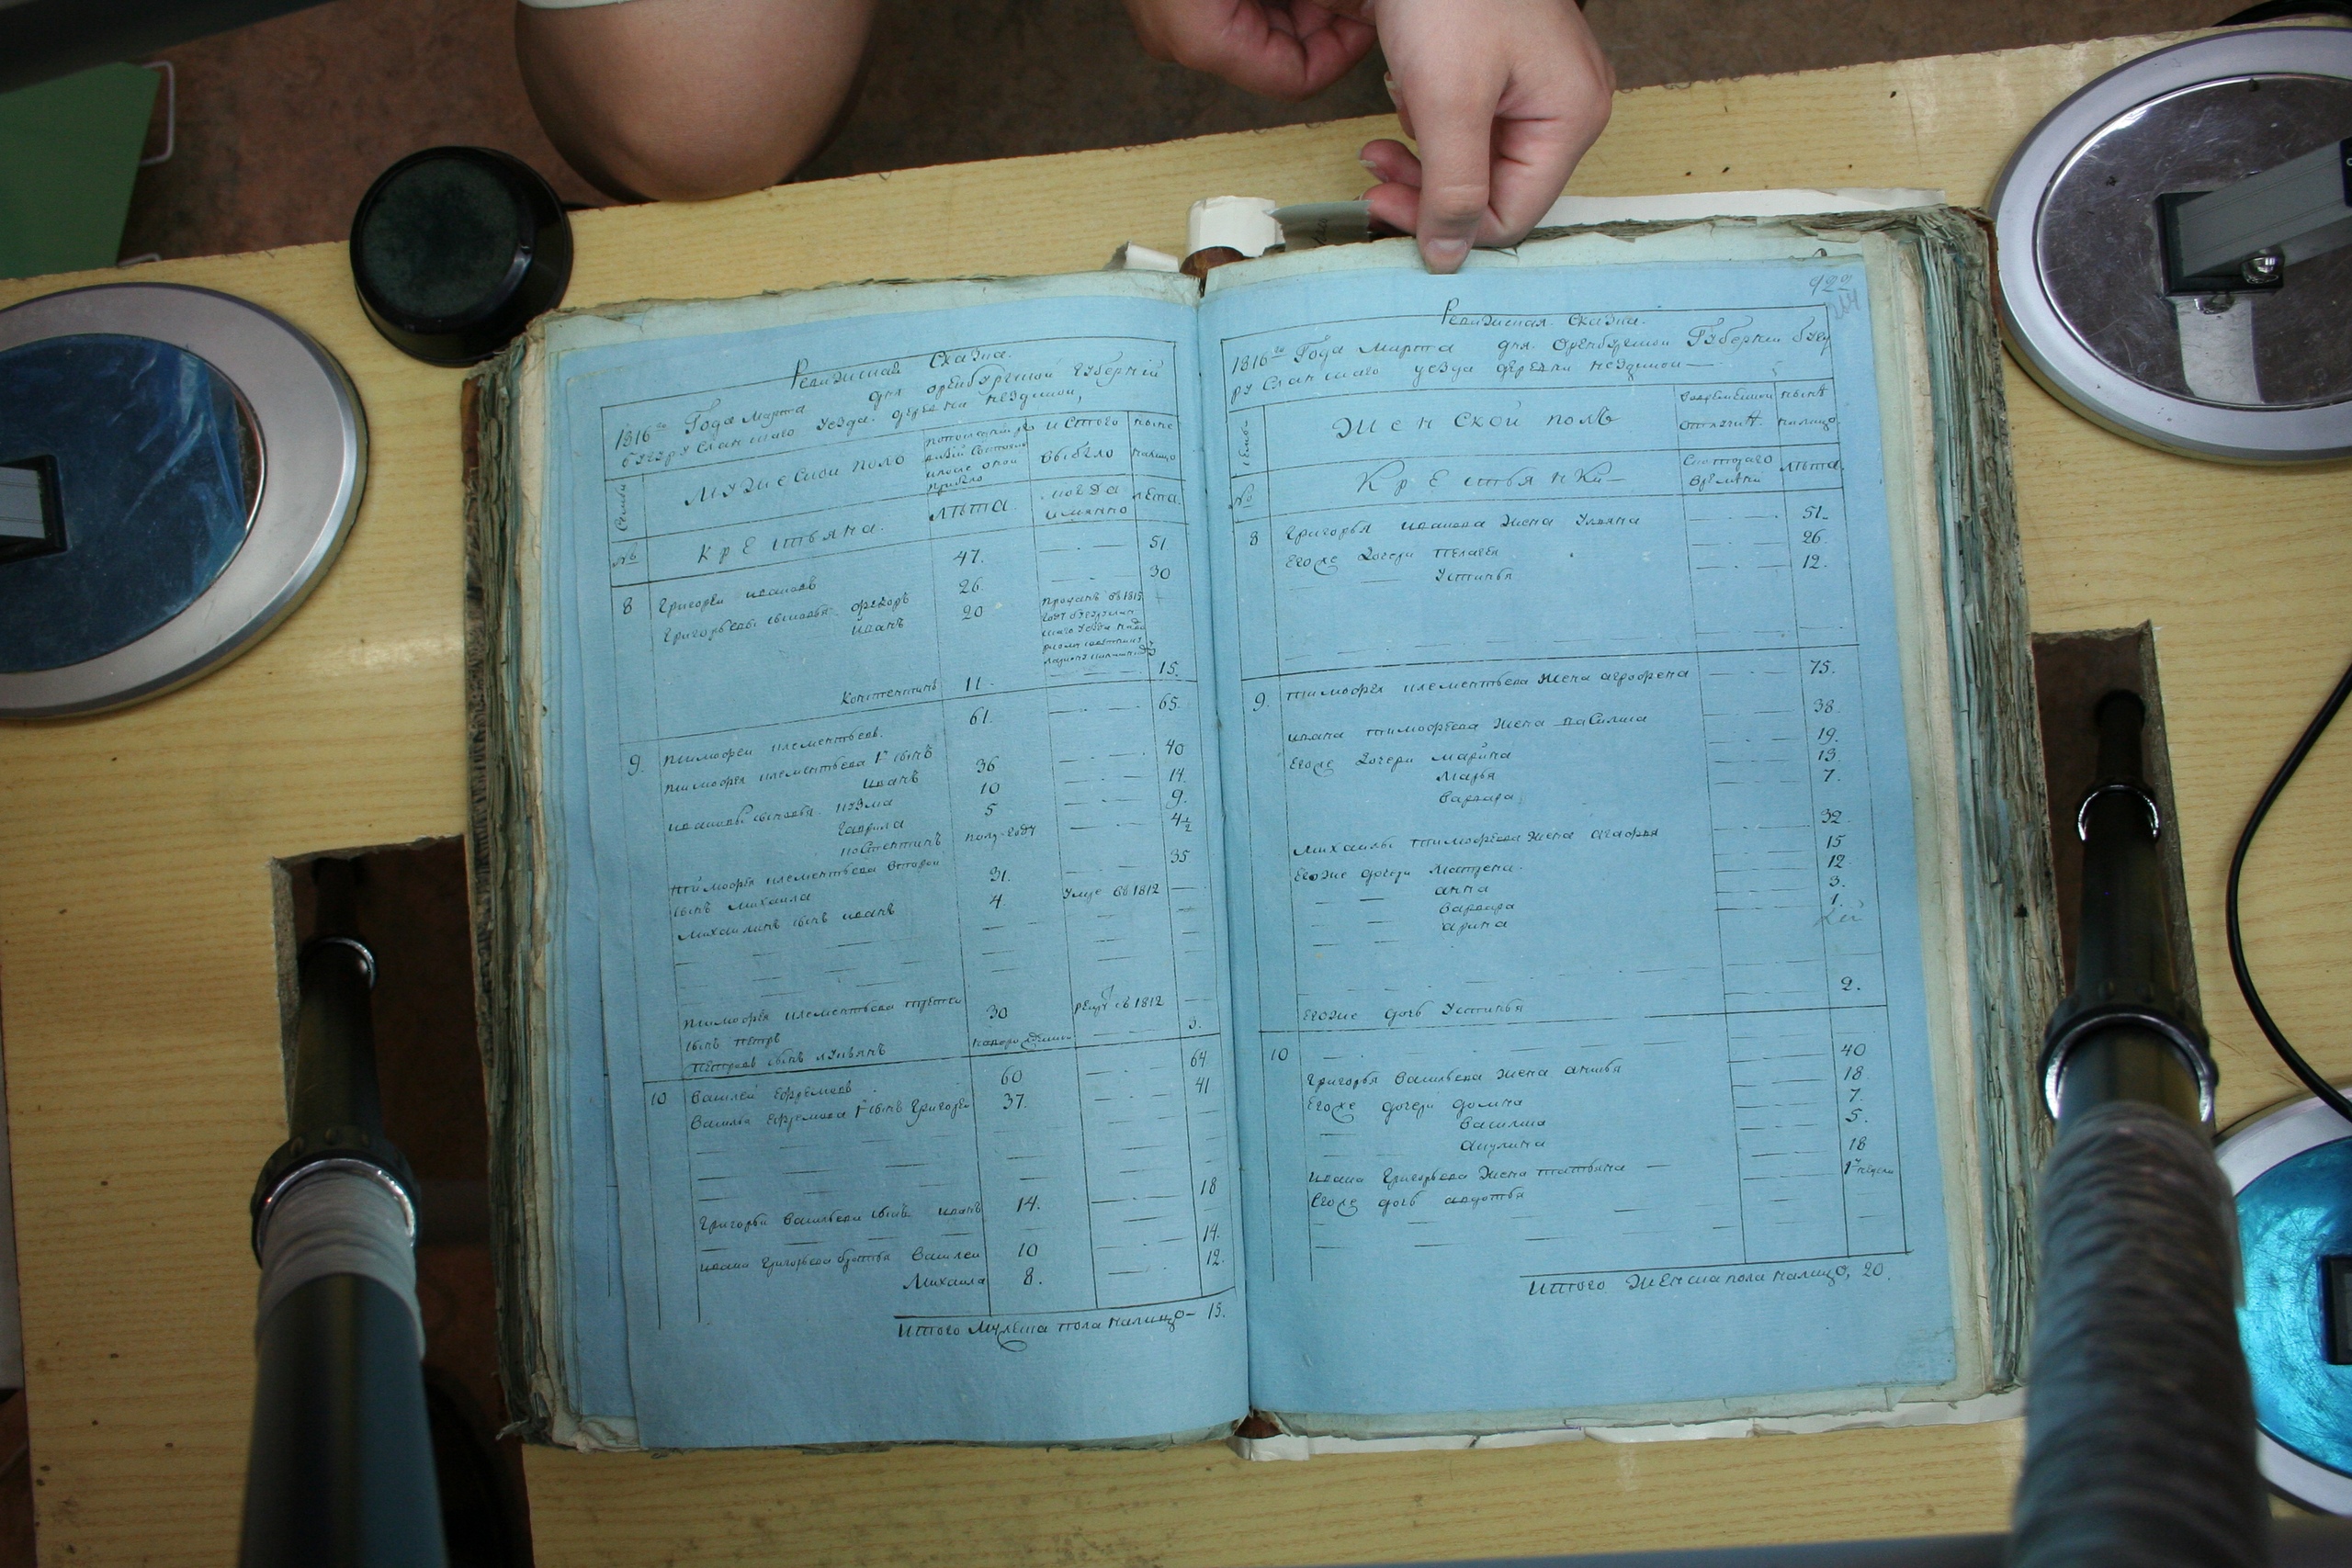 Ревизская Сказка.
1816го Года Марта дня оренбургской Губернии
бугурусланскаго уезда. деревни нездиной,
Семьи
мужеской поло
по последней ревизии состояло и после оной прибыло
и стого выбыло
ныне налицо
№
крестьяна.
лета.
когда имянно
лета.
8 Григорей иванов 47. 51
Григорьевы сыновья федоръ 26. 30
иванъ 20
Констентинъ 11. 15.
9. тимофей клементьев. 61. 65.
тимофея клементьева 1й сынъ
иванъ 36 40
ивановы сыновья кузма 10 14.
Гаврила 5 9.
костентинъ полу году 4 1/2
тимофея клементьева второй
сынъ михаила 31. 35
михаилинъ сынъ иванъ 4. умре въ 1812
тимофея клементьева третей
сынъ петръ 30 рекру въ 1812
петровъ сынъ лукьянъ новорожденн 3.
10 василей ефремов 60 64
василья ефремова 1й сынъ григорей 37. 41
григорья васильева сынъ иванъ 14. 18
ивана григорьева братья василей 10 14.
михаила 8. 12.
итого мужеска пола налицо 15.
922
Ревизская Сказка.
1816го Года марта дня. оренбургской Губернии бугу
русланскаго уезда деревни нездиной
Семьи
женской полъ
во временной отлучке
ныне налицо.
№
Крестьянки
с которого времени
лета.
8 григорья иванова жена ульяна 51.
его же дочери пелагея 26.
устинья 12.
9. тимофея клементьева жена агрофена 75.
ивана тимофеева жена василиса 38.
его же дочери марина 19.
марья 13.
варвара 7.
михаилы тимофеева жена агафья 32.
его же дочери матрена. 15
анна 12.
варвара 3.
арина 1.
его же дочь устинья 2.
10
григорья васильева жена анисья 40
его же дочери домна 18.
василиса 7.
акулина 5.
ивана григорьева жена татьяна 18
его же дочь авдотья 1й недели
итого женска пола налицо, 20.